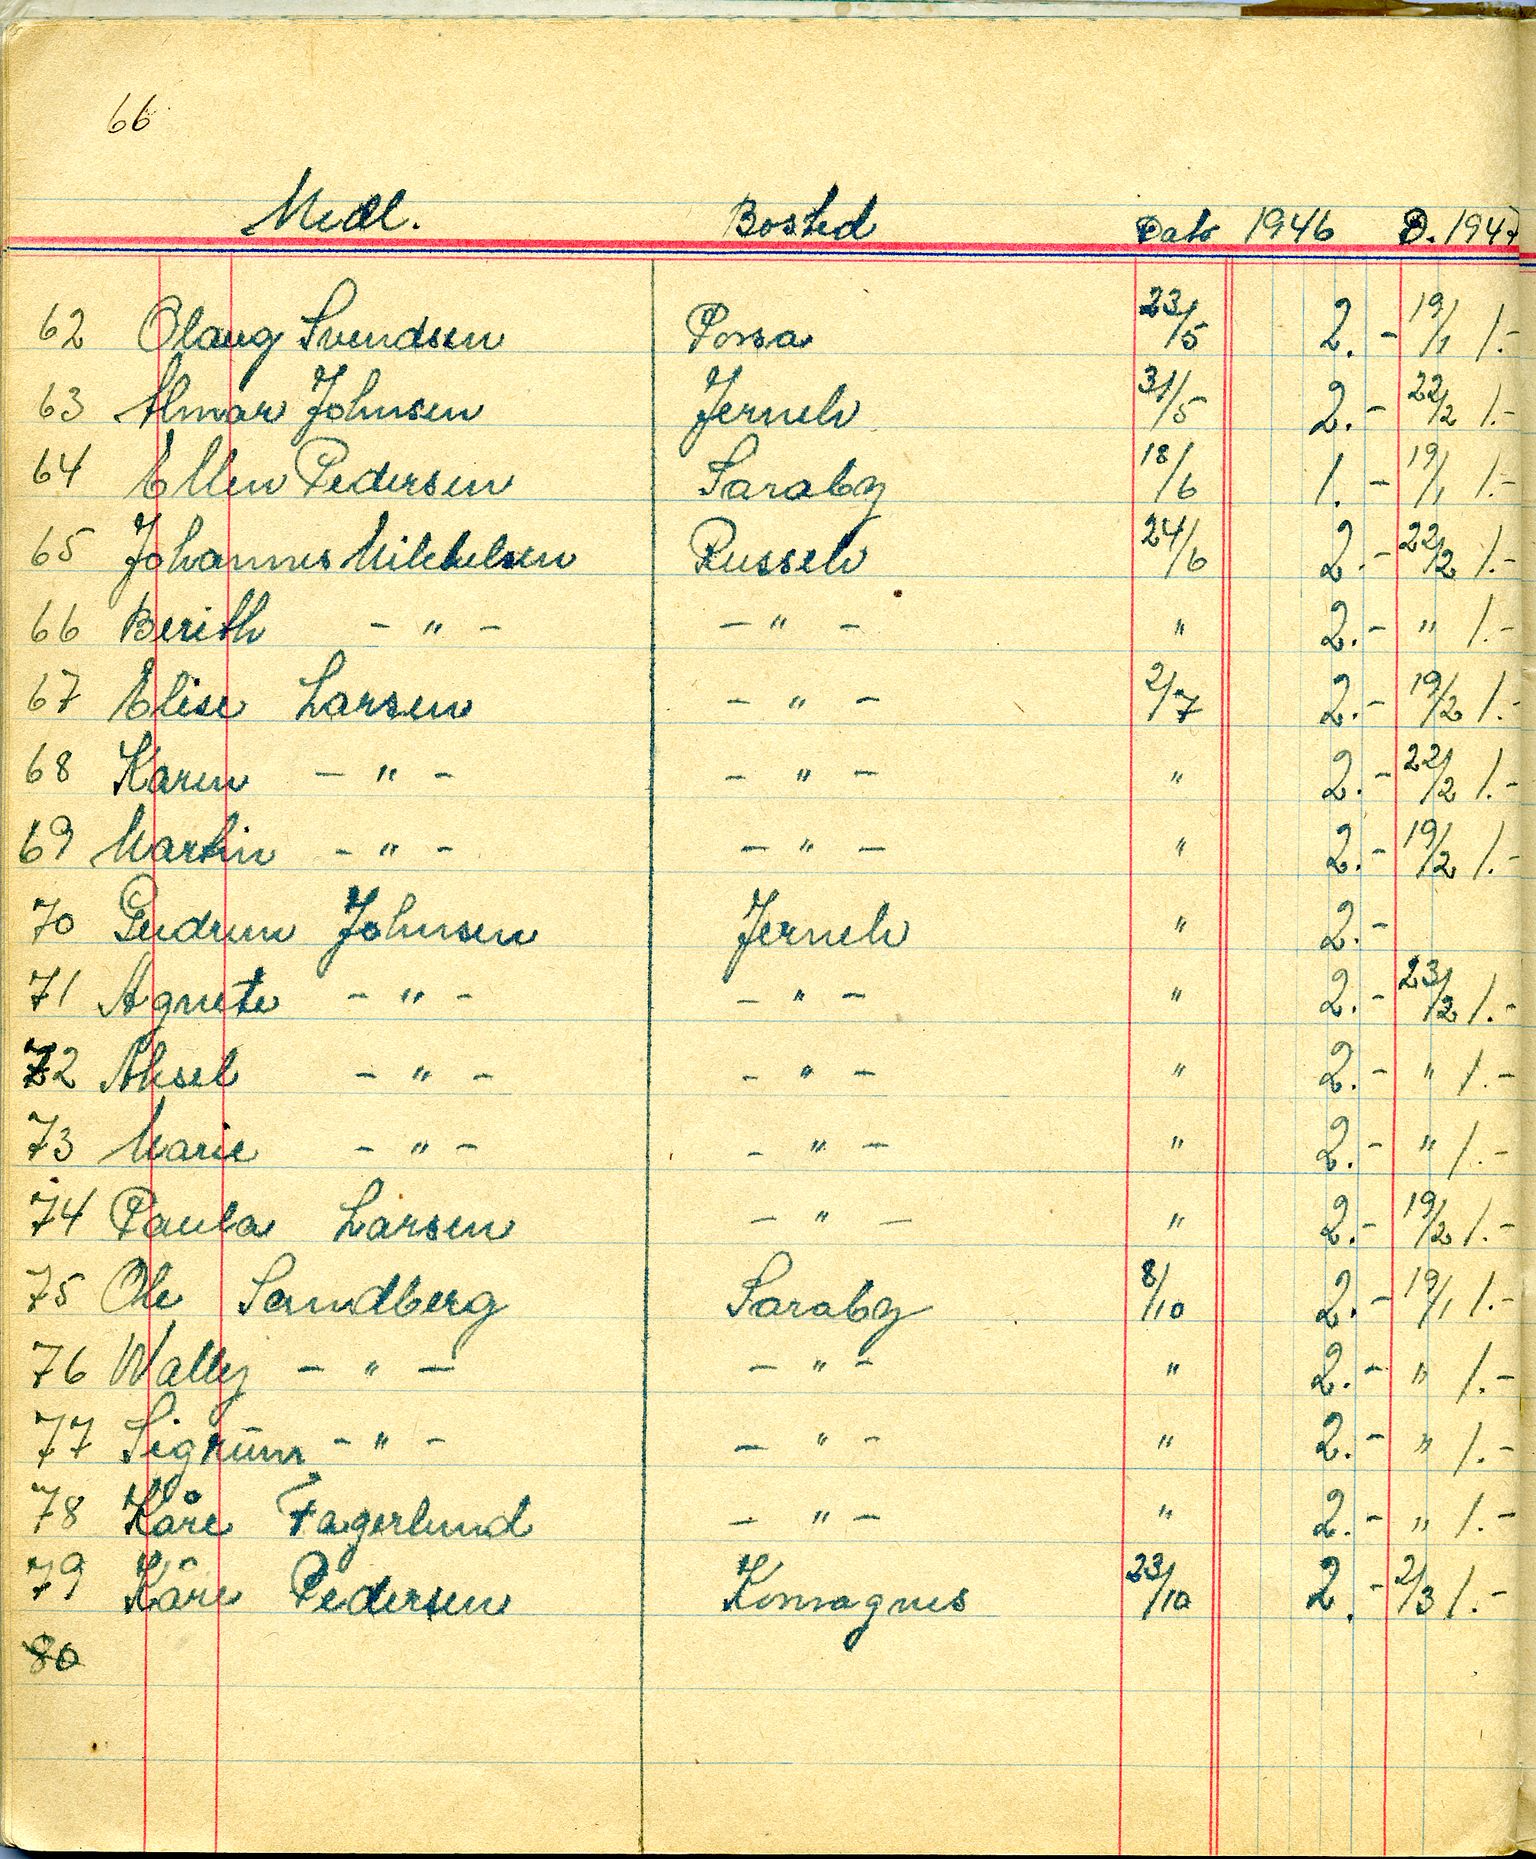 66
Medl. Bosted Dato 1946 D. 1947
62 Olaug Svendsen Porsa 23/5 2.- 19/1 1.-
63 Almar Johnsen Jernelv 31/5 2.- 22/2 1.-
64 Ellen Pedersen Saraby 18/6 1.- 19/1 1.-
65 Johannes Mikkelsen Russelv 24/6 2.- 22/2 1.-
66 Berith - " - - " - " 2.- " 1.-
67 Elise Larsen - " - 2/7 2.- 19/2 1.-
68 Karen - " - - " - " 2.- 22/2 1.-
69 Martin - " - - " - " 2.- 19/2 1.-
70 Gudrun Johnsen Jernelv " 2.-
71 Agnete - " - - " - " 2.- 23/2 1.-
72 Aksel - " - - " - " 2.- " 1.-
73 Marie - " - - " - " 2.- " 1.-
74 Paula Larsen - " - " 2.- 19/2 1.-
75 Ole Sandberg Saraby 8/10 2.- 19/1 1.-
76 Wally - " - - " - " 2.- " 1.-
77 Sigrun - " - - " - " 2.- " 1.-
78 Kåre Fagerlund - " - " 2.- " 1.-
79 Kåre Pedersen Komagnes 23/10 2.- 2/3 1.-
80